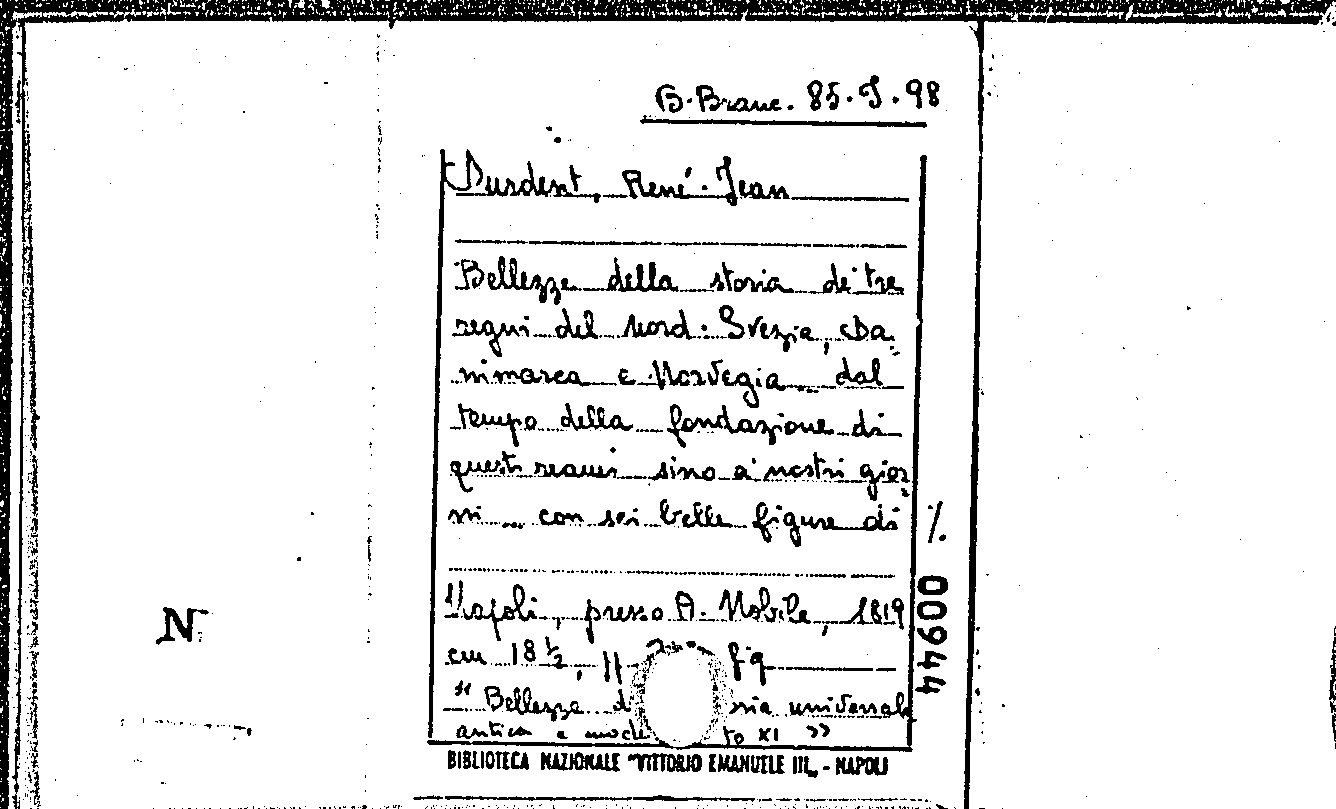 B. Branc. 85. J. 98
Durdent, René-Jean
Bellezze della storia de' tre
regni del Nord: Svezia, Da=
nimarca e Norvegia ... dal
tempo della fondazione di
questi reami sino a' nostri gior=
ni ... con sei belle figure di
%
Napoli, presso A. Nobile, 1819
cm 18 ½, fig
" Bellezze d ria universale
antica e mode to XI "
00944
N
BIBLIOTECA NAZIONALE "VITTORIO EMANUELE III" - NAPOLI